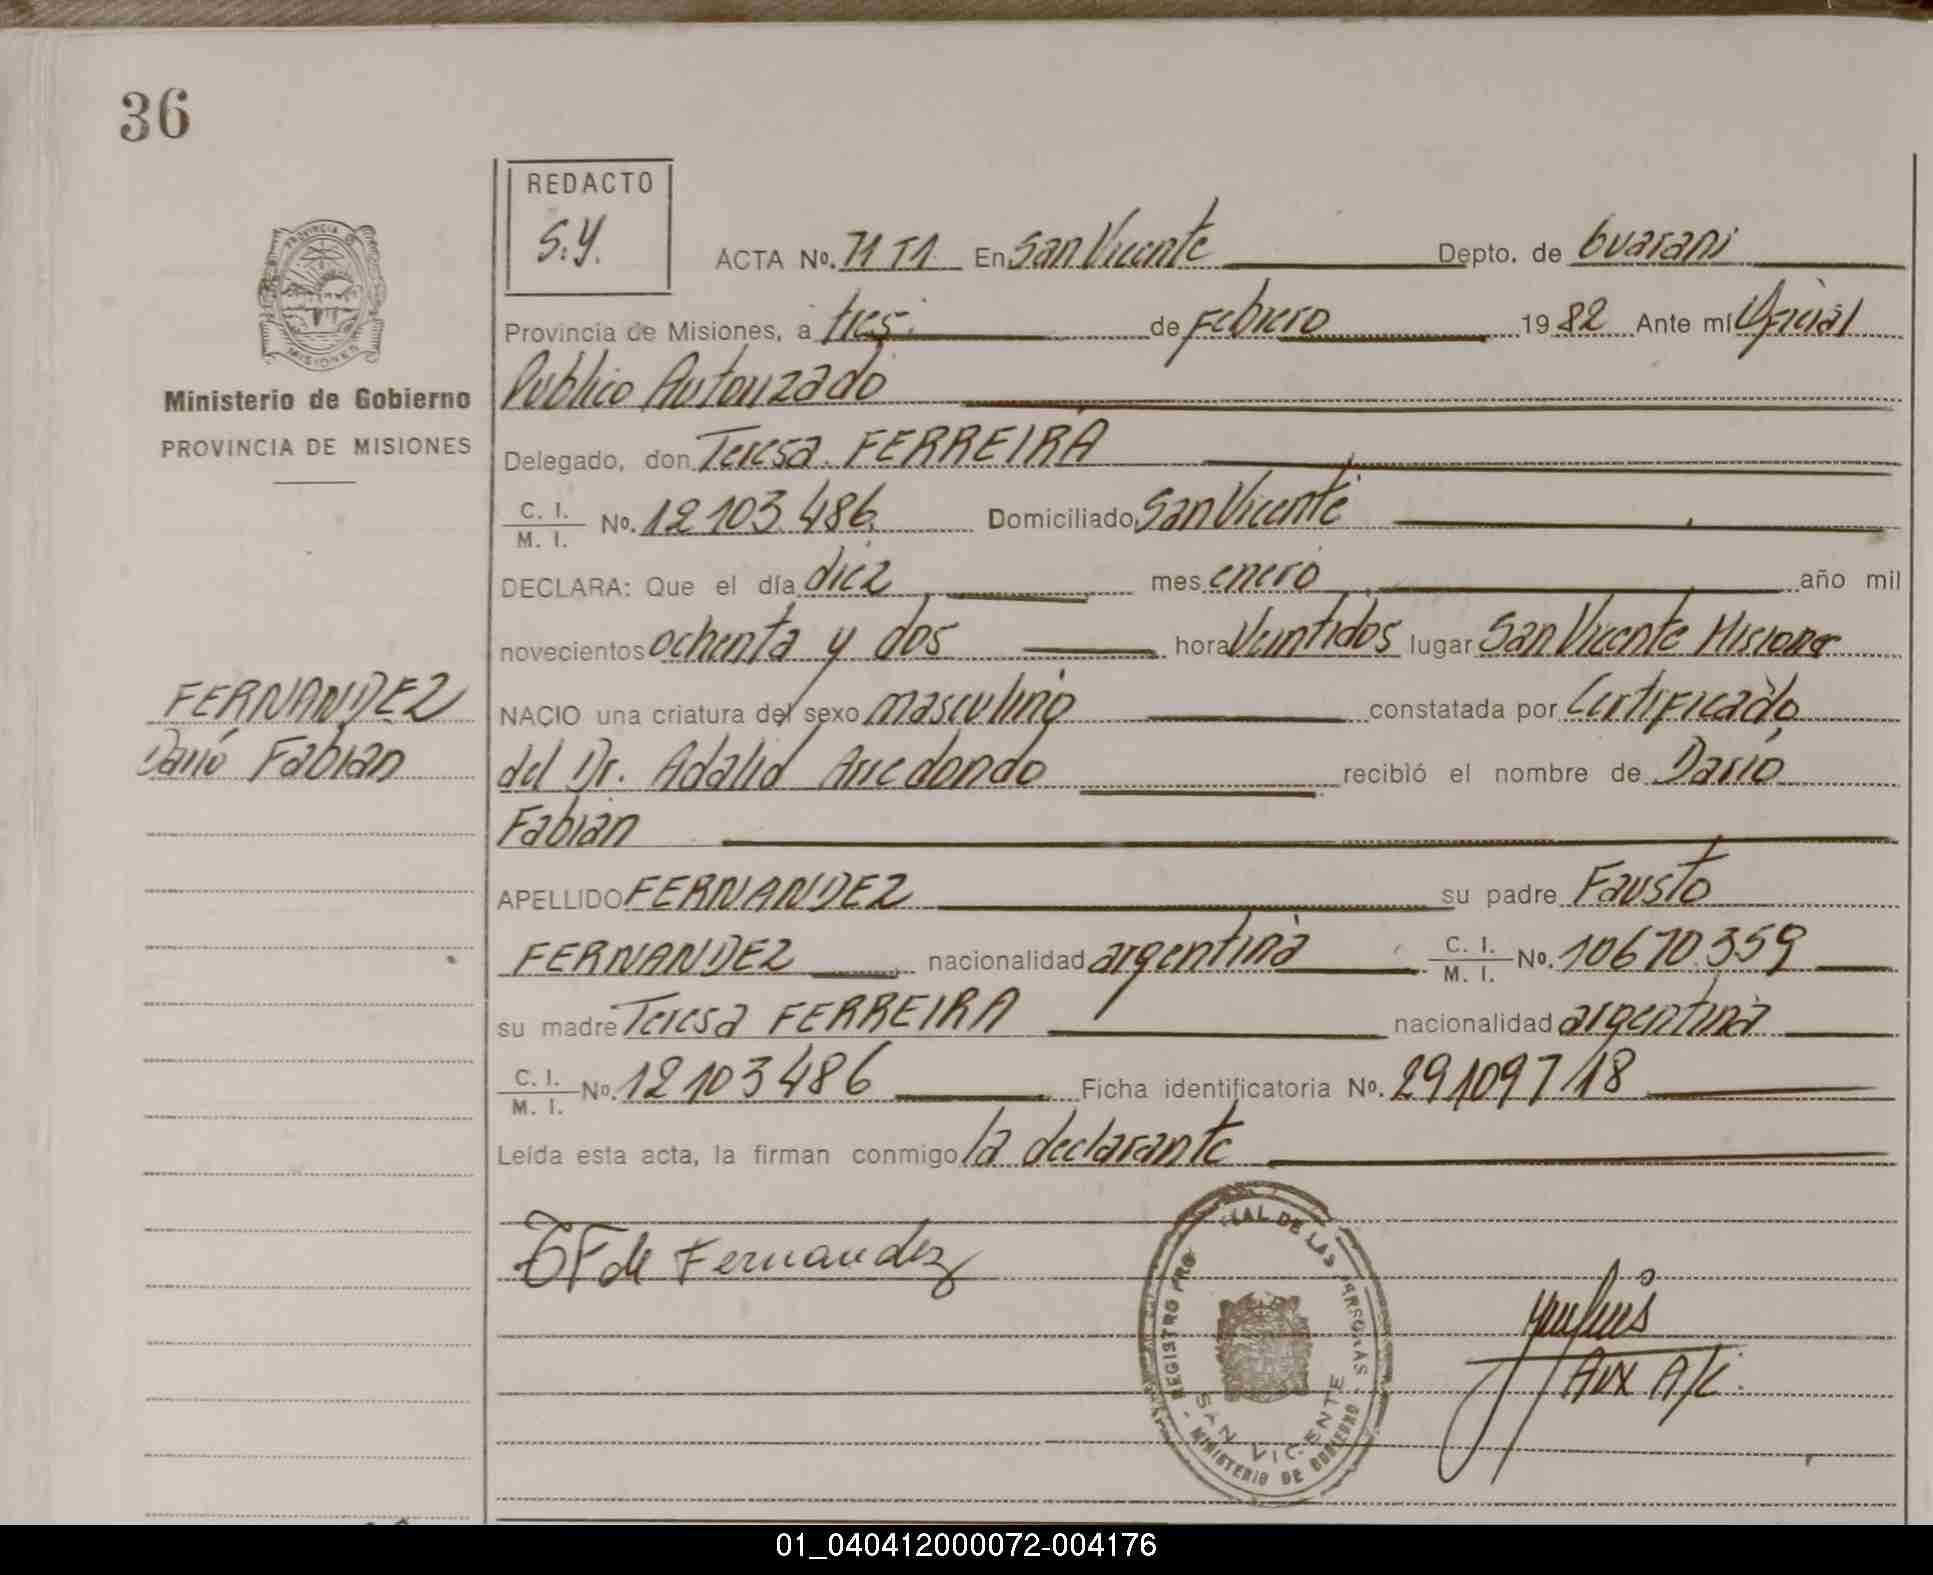 36
REDACTO
S.Y.
ACTA No. 71 T1 En San Vicente Depto. de Guarani
Provincia de Misiones, a tres de Febrero 1982 Ante mí Oficial
Publico Autorizado
Delegado, don Teresa FERREIRA
C. I.
M. I. No. 12103486 Domiciliado San Vicente
DECLARA: Que el día diez mes enero año mil
novecientos ochenta y dos hora Veintidos lugar San Vicente Misiones
NACIO una criatura del sexo masculino constatada por Certificado
del Dr. Adalid Arredondo recibió el nombre de Darío
Fabian
APELLIDO FERNANDEZ su padre Fausto
FERNANDEZ nacionalidad argentina C. I.
M. I. No. 10670.359
su madre Teresa FERREIRA nacionalidad argentina
C. I.
M. I. No. 12103486 Ficha identificatoria No. 29109718
Leída esta acta, la firman conmigo la declarante
MISIONES
Ministerio de Gobierno
PROVINCIA DE MISIONES
FERNANDEZ
Darío Fabian
TF de Fernandez
REGISTRO PRO IAL DE LAS PERSONAS
SAN VICENTE
MINISTERIO DE GOBIERNO
Aux A/C.
01_040412000072-004176